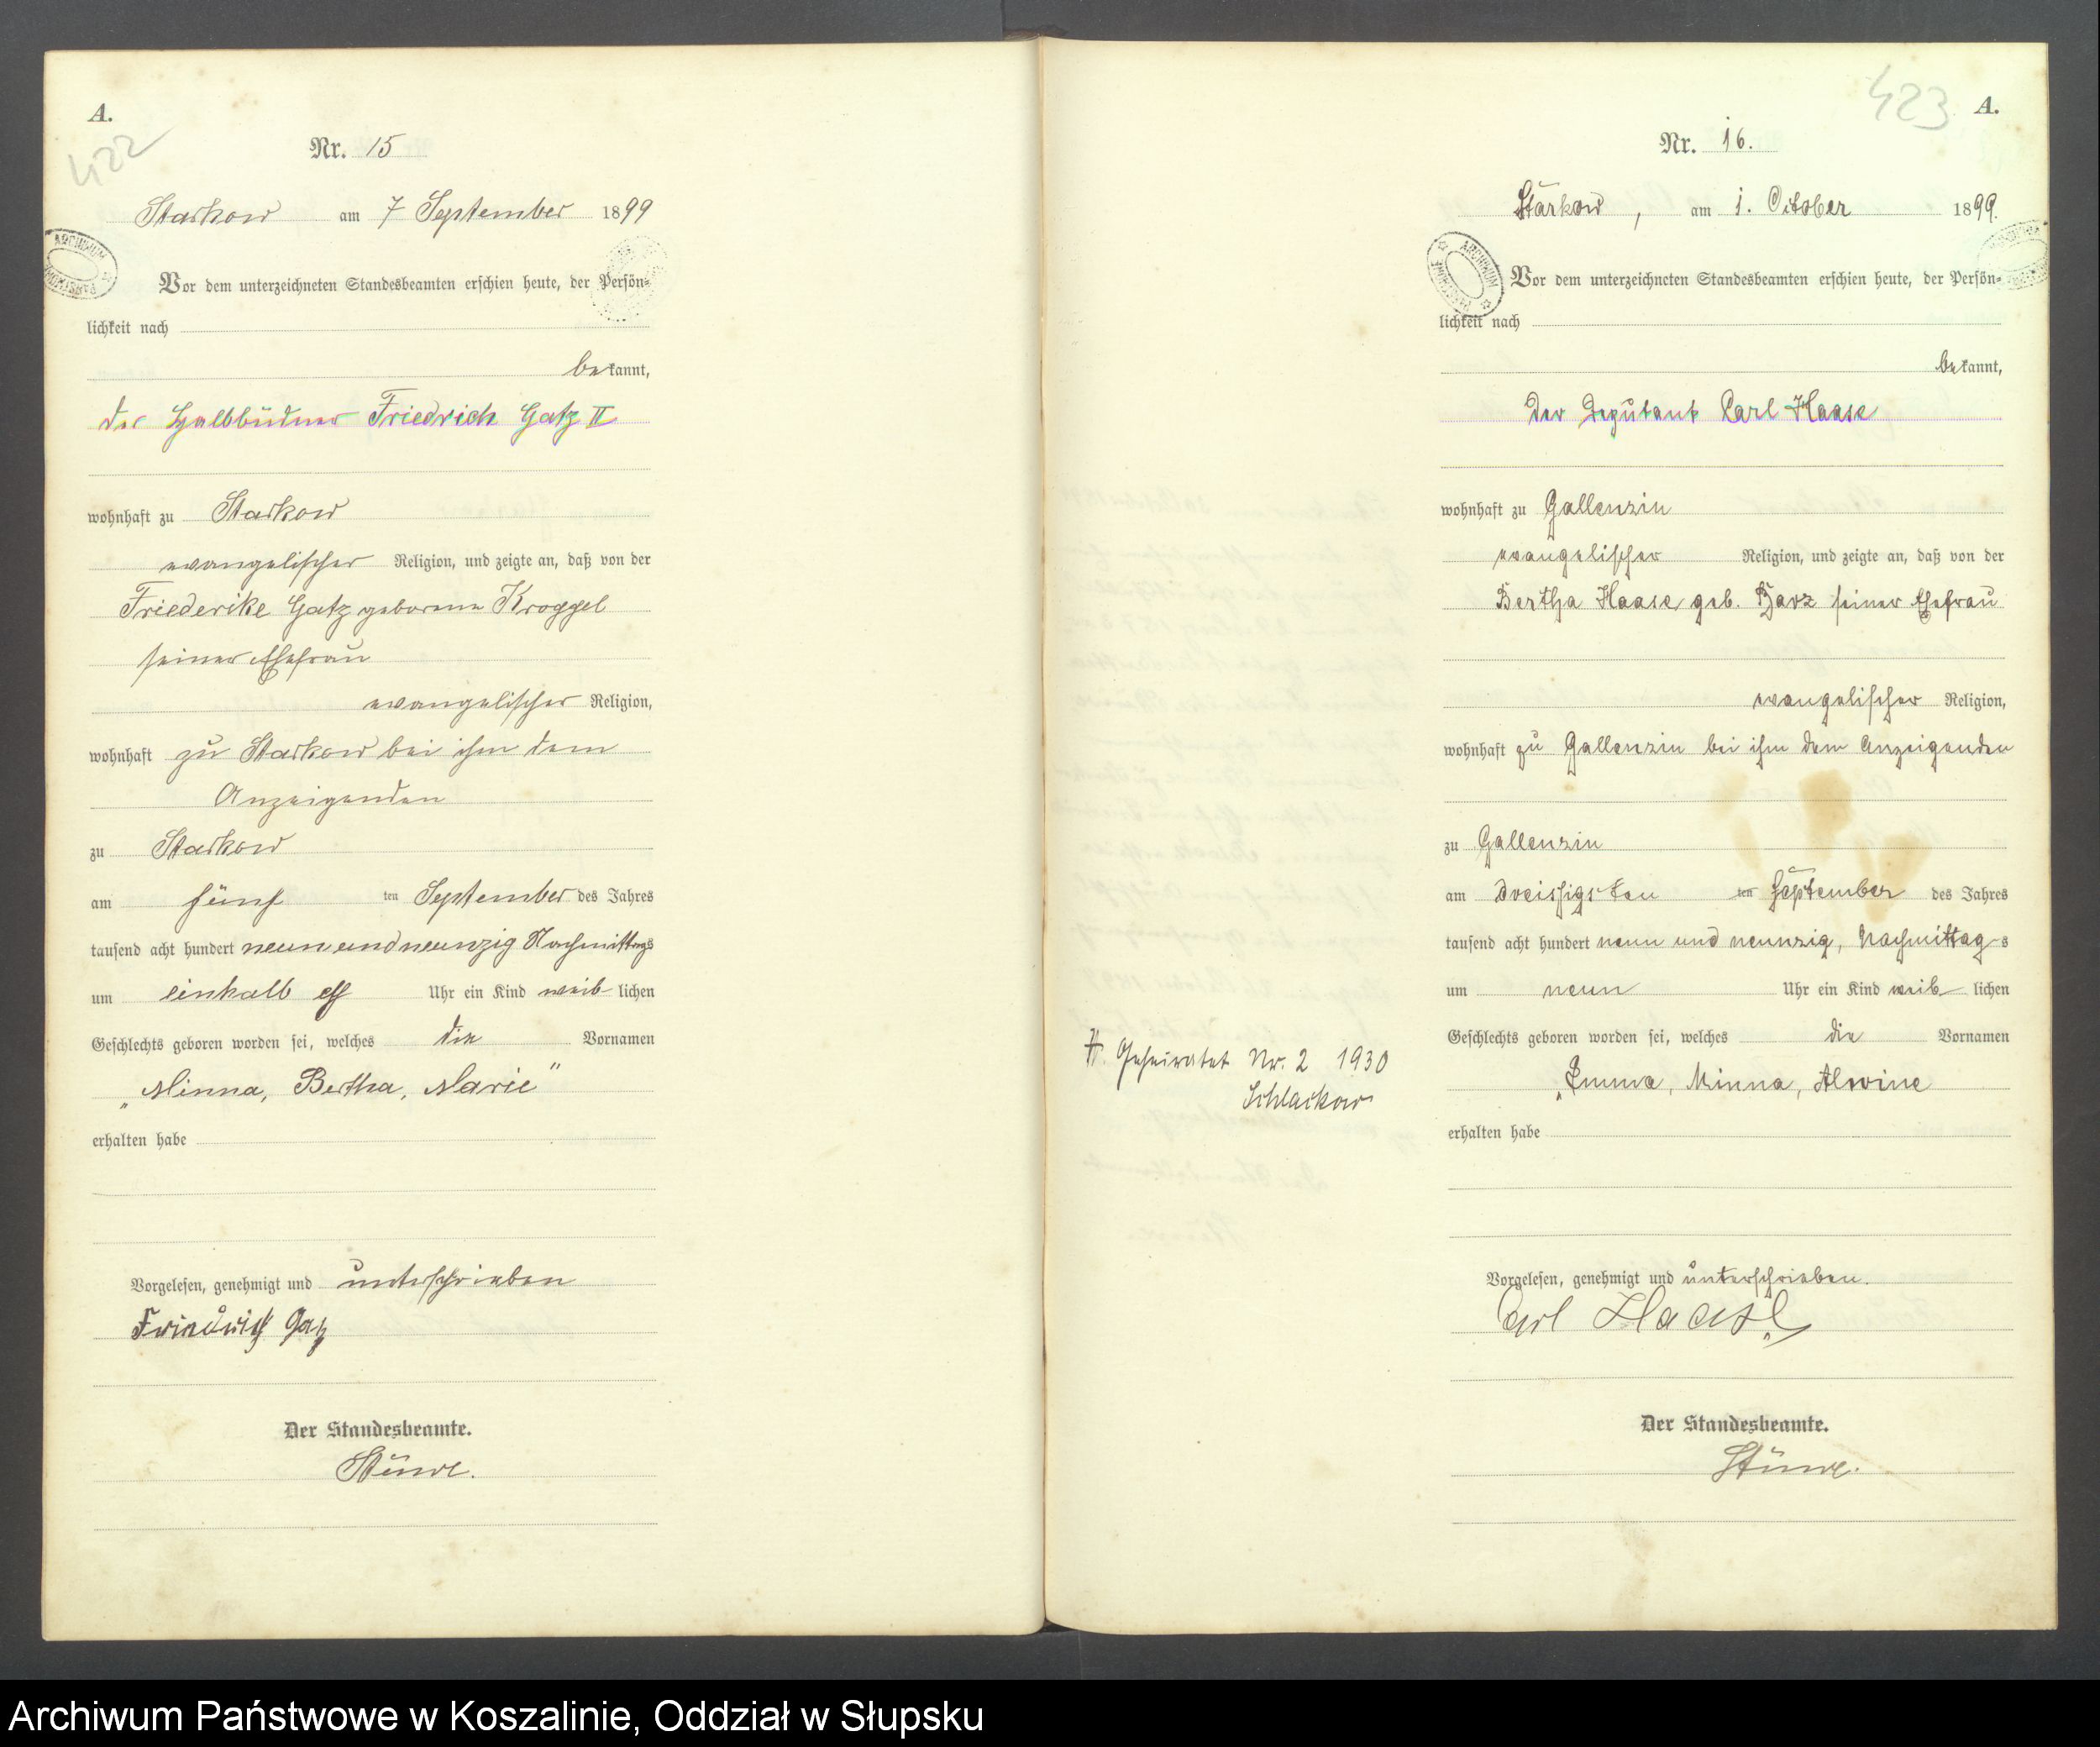 A.
422
Nr. 15
Starkow am 7 September 1899
Vor dem unterzeichneten Standesbeamten erschien heute, der Persön-
lichkeit nach
bekannt,
der Halbbüdner Friedrich Gatz II
wohnhaft zu Starkow
evangelischer Religion, und zeigte an, daß von der
Friederike Gatz geborene Kroggel
seiner Ehefrau
evangelischer Religion,
wohnhaft zu Starkow bei ihm dem
Anzeigenden
zu Starkow
am fünf ten September des Jahres
tausend acht hundert neun und neunzig Nachmittags
um einhalb elf Uhr ein Kind weib lichen
Geschlechts geboren worden sei, welches die Vornamen
„Minna, Bertha, Marie“
erhalten habe
Vorgelesen, genehmigt und unterschrieben
Friedrich Gatz
Der Standesbeamte.
Stüwe.
423
A.
Nr. 16.
Starkow, am 1. October 1899.
Vor dem unterzeichneten Standesbeamten erschien heute, der Persön-
lichkeit nach
bekannt,
Der Deputant Carl Haase
wohnhaft zu Gallenzin
evangelischer Religion, und zeigte an, daß von der
Bertha Haase geb. Harz seiner Ehefrau
evangelischer Religion,
wohnhaft zu Gallenzin bei ihm dem Anzeigenden
zu Gallenzin
am dreissigsten ten September des Jahres
tausend acht hundert neun und neunzig, Nachmittag s
um neun Uhr ein Kind weib lichen
Geschlechts geboren worden sei, welches die Vornamen
„Emma, Minna, Alwine
erhalten habe
Vorgelesen, genehmigt und unterschrieben.
Carl Haase
Der Standesbeamte.
Stüwe.
Geheiratet Nr. 2 1930
Schlackow
Archiwum Państwowe w Koszalinie, Oddział w Słupsku